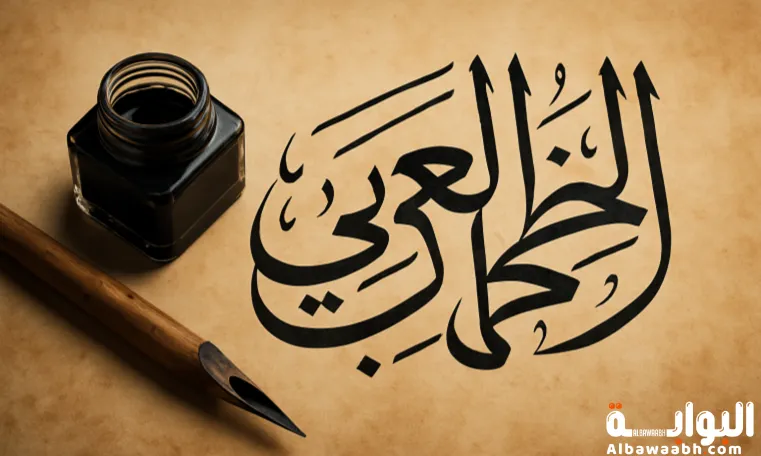 الخط العربي
البوابة
ALBAWAABH
Albawaabh com